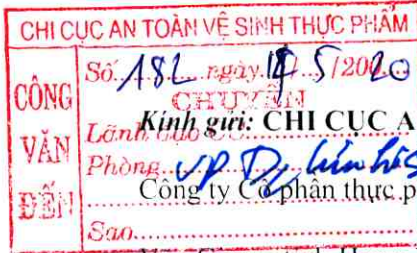 CHI CỤC AN TOÀN VỆ SINH THỰC PHẨM
CÔNG VĂN ĐẾN
Số 182 ngày 5/2020
CHUYỂN
Lãnh đạo
Kính gửi: CHI CỤC A
Phòng VP
Công ty Cổ phần thực p
Sao